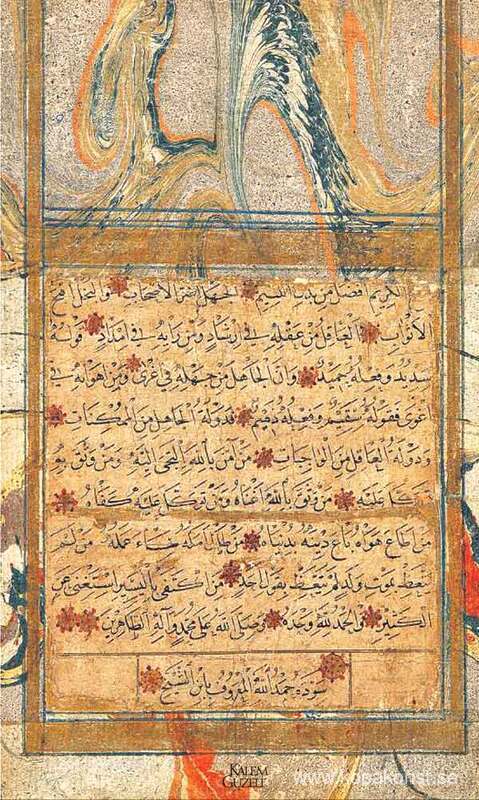 الكريم افضل من بذل اللئيم الجهل اضر الاصحاب والتجمل افخر
الاثواب العاقل من عقله في ارشاد ومن رايه في امداد فقوله
سديد وفعله حميد وان الجاهل من جهله في اغرى ومن اهوائه في
اغوى فقوله سقيم وفعله ذميم فدولة الجاهل من الممكنات
ودولة العاقل من الواجبات من آمن بالله التجى اليه ومن وثق به
توكل عليه من وثق بالله اغناه ومن توكل عليه كفاه
من اطاع هواه باع دينه بدنياه من طال امله ساء عمله من لم
يتعظ بموت ولد لم يتعظ بقول احد من اكتفى باليسير استغنى عن
الكثير والحمد لله وحده وصلى الله على محمد وآله الطاهرين
سوده حمد الله المعروف بابن الشيخ
KALEM
GÜZELİ
www.kopakonst.se